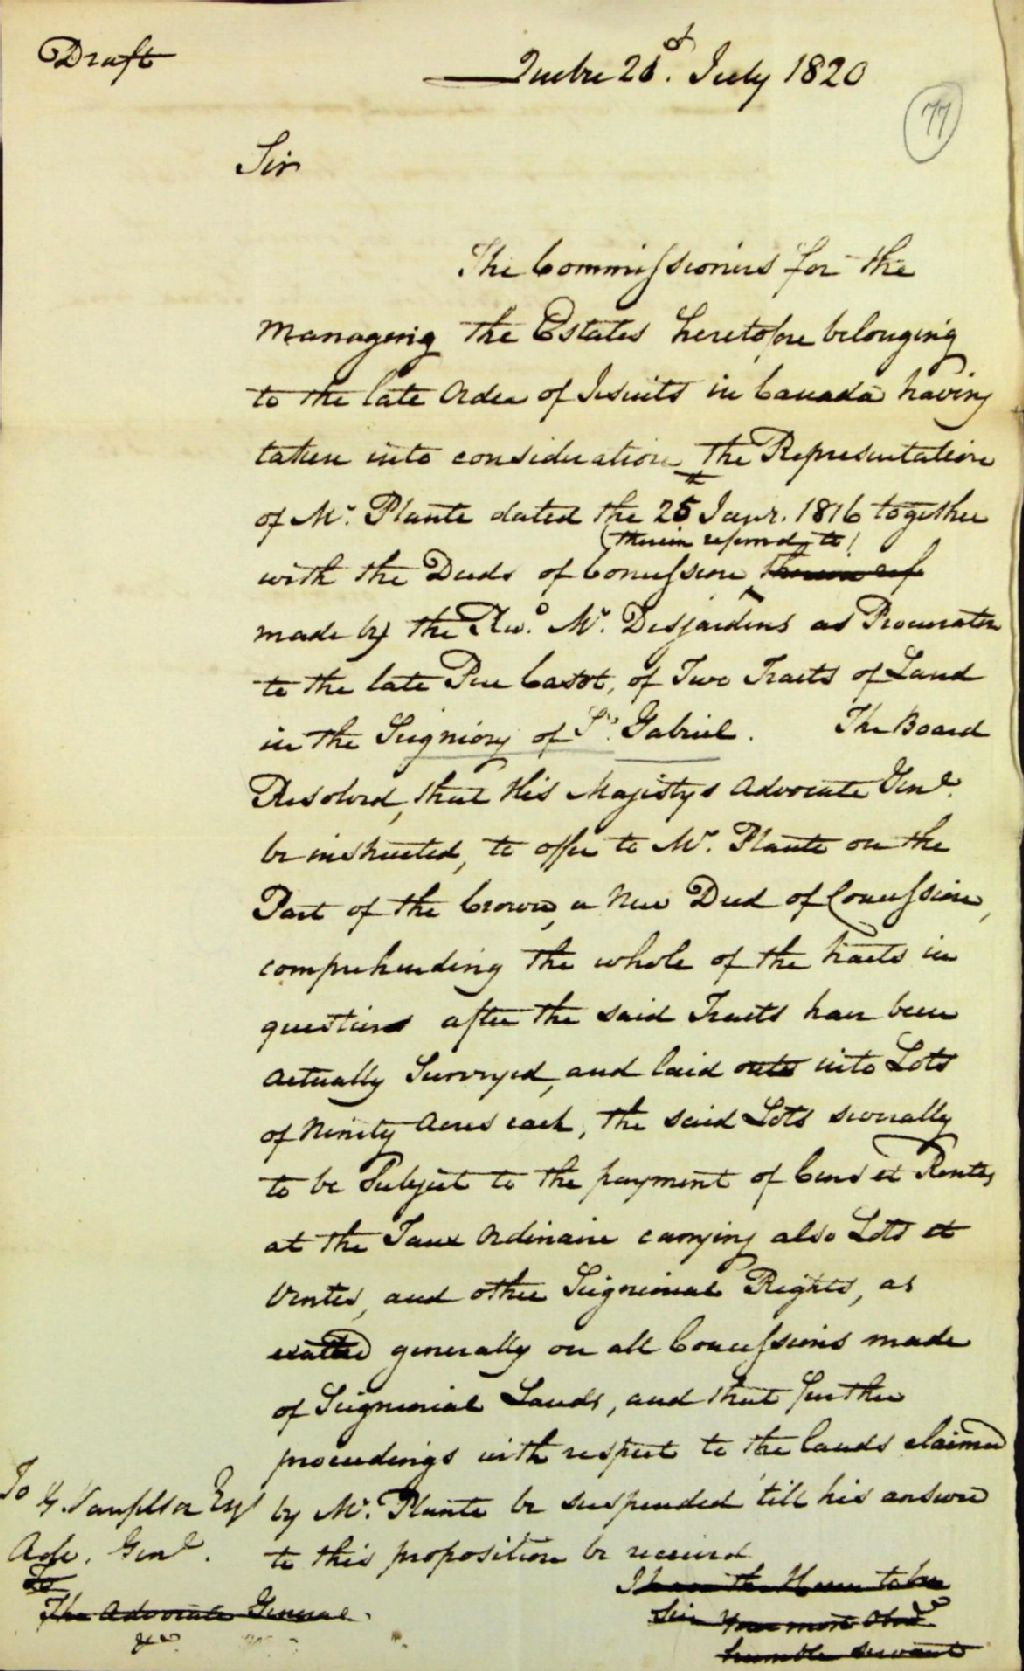 Draft
Quebec 21st. July 1820
77
Sir
The Commissioners for the
Managing the Estates heretofore belonging
to the late Order of Jesuits in Canada having
taken into consideration the Representation
of Mr. Plante dated the 25th Janr. 1816 together
(therein referred to)
with the Deeds of Concession therein ref
made by the Revd. Mr. Desjardins as Procurator
to the late Pere Casot, of Two Tracts of Land
in the Seigniory of St. Gabriel. The Board
Resolved, that His Majestys Advocate Genl.
be instructed, to offer to Mr. Plante on the
Part of the Crown, a New Deed of Concession,
comprehending the whole of the tracts in
question after the said Tracts have been
actually Surveyed, and laid out into Lots
of Ninety Acres each, the said Lots severally
to be Subject to the payment of Cens et Rentes
at the Taux Ordinaire carrying also Lots et
Ventes, and other Seignieurial Rights, as
exacted generally on all Concessions made
of Seigneurial Lands, and that further
proceedings with respect to the lands claimed
by Mr. Plante be suspended 'till his answer
to this proposition be received
I have the Honor to be
Sir Your most Obedt.
humble servant
To G. Vanfelson Esqr
Adv. Genl.
To
The Advocate General.
&c